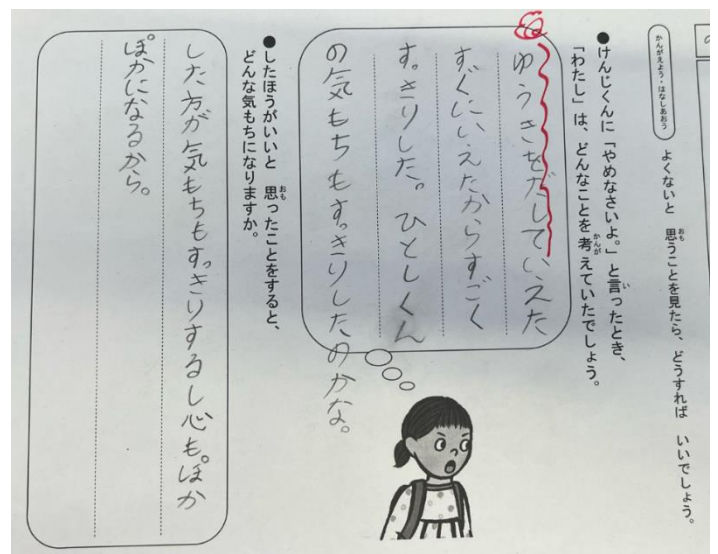 かんがえよう・はなしあおう
よくないと 思うことを見たら、どうすれば いいでしょう。
●けんじくんに「やめなさいよ。」と言ったとき、
「わたし」は、どんなことを考えていたでしょう。
ゆうきをだしていえた
すぐにいえたからすごく
すっきりした。ひとしくん
の気もちもすっきりしたのかな。
●したほうがいいと 思ったことをすると、
どんな気もちになりますか。
した方が気もちもすっきりするし心も。ぽか
ぽかになるから。